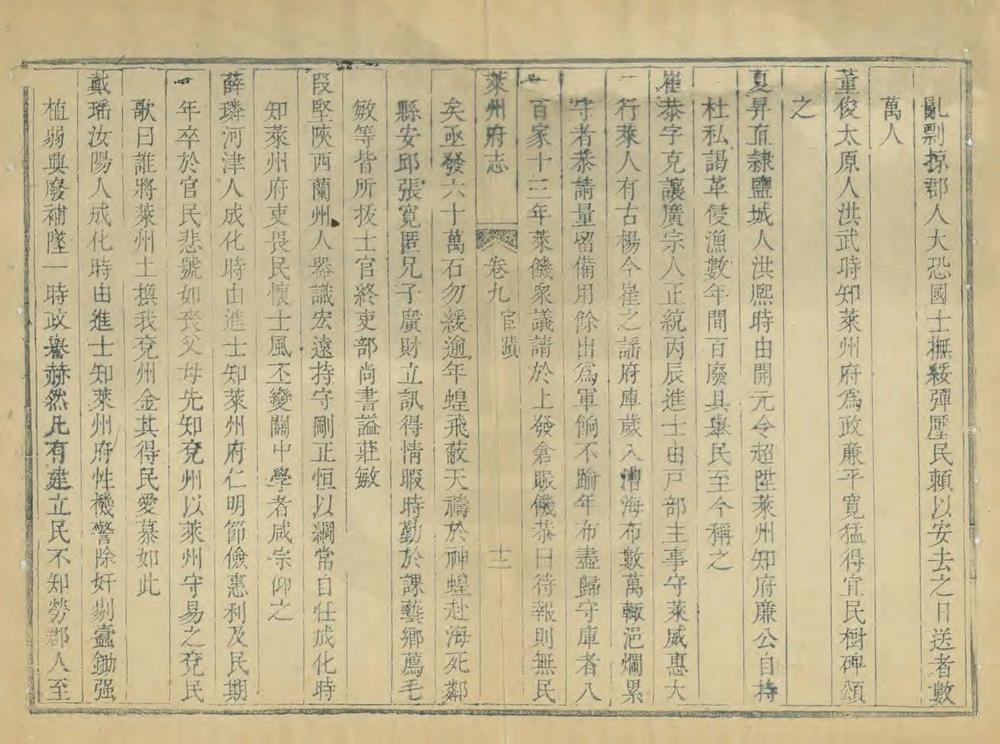 亂剽掠郡人大恐國士撫綏彈壓民賴以安去之日送者數
萬人
董俊太原人洪武時知萊州府爲政亷平寬猛得宜民樹碑頌
之
夏昇直隸鹽城人洪熈時由開元令超陞萊州知府廉公自持
杜私謁革侵漁數年間百廢具舉民至今稱之
崔恭字克讓廣宗人正統丙辰進士由戸部主事守萊威惠大
行萊人有古楊今崔之謡府庫歲入漕海布數萬輙浥爛累
守者恭請量留備用餘出爲軍餉不踰年布盡歸守庫者八
百家十三年萊饑衆議請於上發倉賑饑恭曰待報則無民
萊州府志 卷九 宦蹟 十二
矣亟發六十萬石勿緩逾年蝗飛蔽天禱於神蝗赴海死鄰
縣安邱張寬匿兄子廣財立訊得情暇時勤於課藝鄉薦毛
敏等皆所拔士官終吏部尚書謚莊敏
段堅陜西蘭州人器識宏遠持守剛正恒以綱常自任成化時
知萊州府吏畏民懷士風丕變關中學者咸宗仰之
薛璘河津人成化時由進士知萊州府仁明節儉惠利及民期
年卒於官民悲號如喪父母先知兗州以萊州守易之兗民
歌曰誰將萊州土換我兗州金其得民愛慕如此
戴瑶汝陽人成化時由進士知萊州府性機警除奸剔蠹鋤强
植弱興廢補墜一時政譽赫然凡有建立民不知勞郡人至